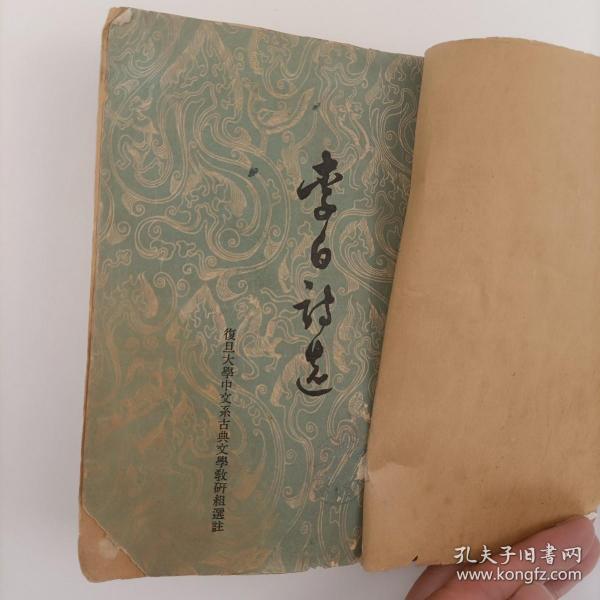 李白詩选
復旦大學中文系古典文學教研組選註
孔夫子旧書网
www.kongfz.com